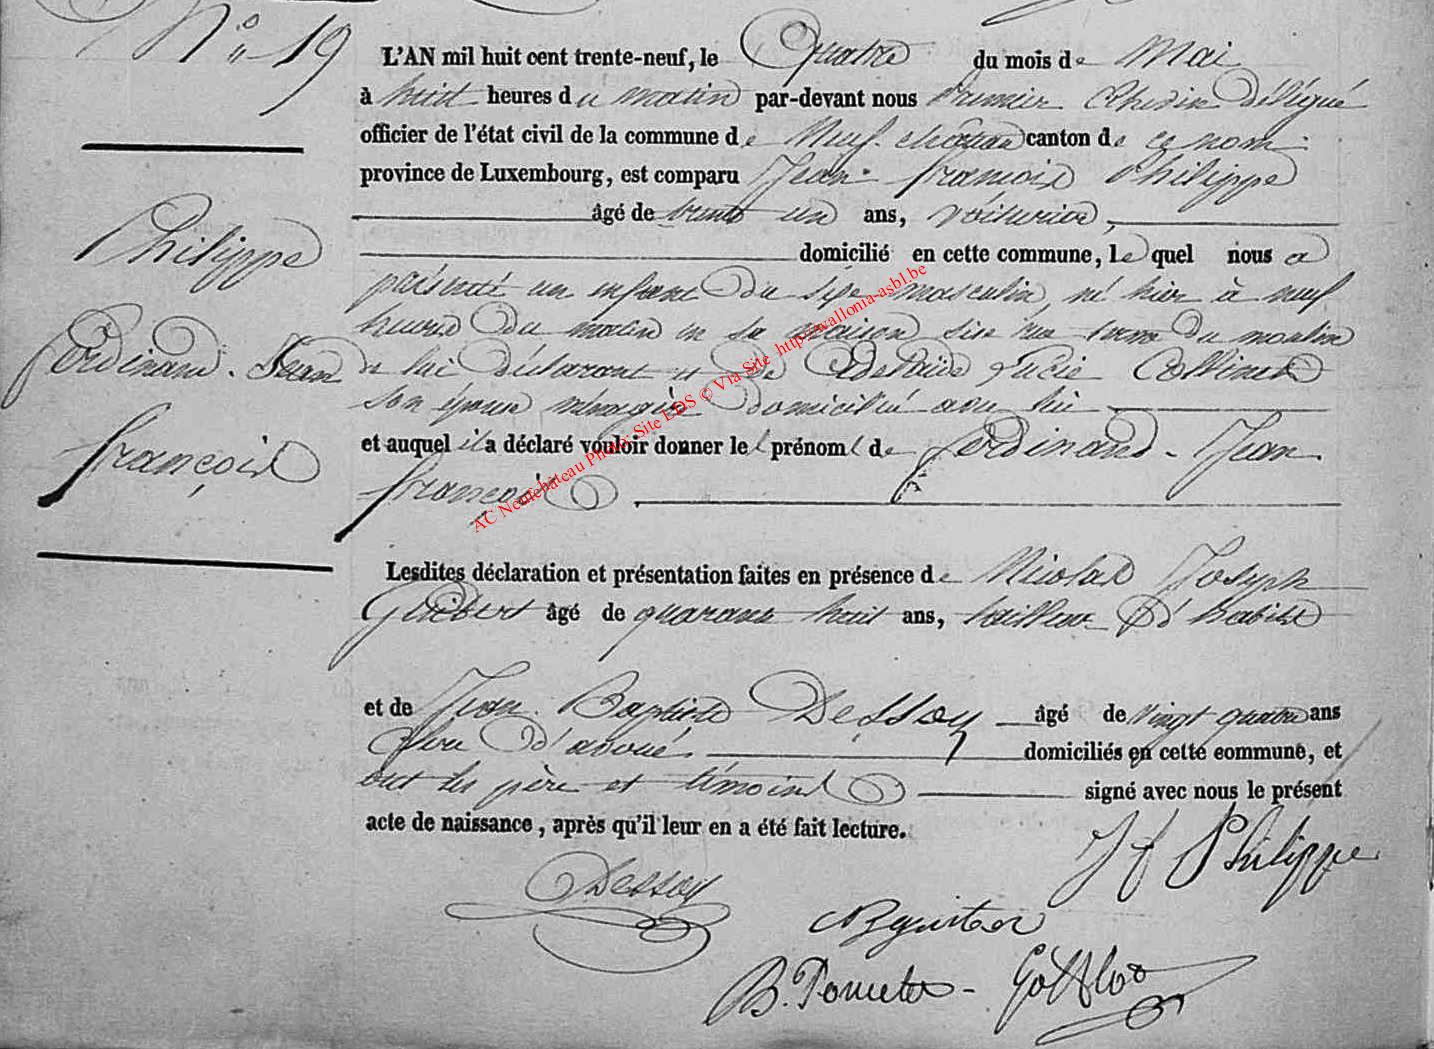 N° 19
L'AN mil huit cent trente-neuf, le Quatre du mois de Mai
à huit heures du matin par-devant nous Premier Echevin délégué
officier de l'état civil de la commune de Neufchateau canton de ce nom
province de Luxembourg, est comparu Jean françois Philippe
âgé de trente un ans, voiturier,
domicilié en cette commune, lequel nous a
présenté un enfant du sexe masculin, né hier à neuf
heures du matin en sa maison sise rue du moulin
de lui déclarant et de Adelaïde Lucie
son épouse ménagère domiciliée avec lui
et auquel il a déclaré vouloir donner le prénom de ferdinand - Jean
françois
Philippe
ferdinand. Jean
françois
Lesdites déclaration et présentation faites en présence de Nicolas Joseph
âgé de quarante huit ans, tailleur d'habits
et de Jean Baptiste Dessoy âgé de vingt quatre ans
d'avoué domiciliés en cette commune, et
ont les père et témoins signé avec nous le présent
acte de naissance, après qu'il leur en a été fait lecture.
Dessoy
J f Philippe
AC Neufchâteau Photo: Site EDS © Via Site http://wallonia-asbl.be